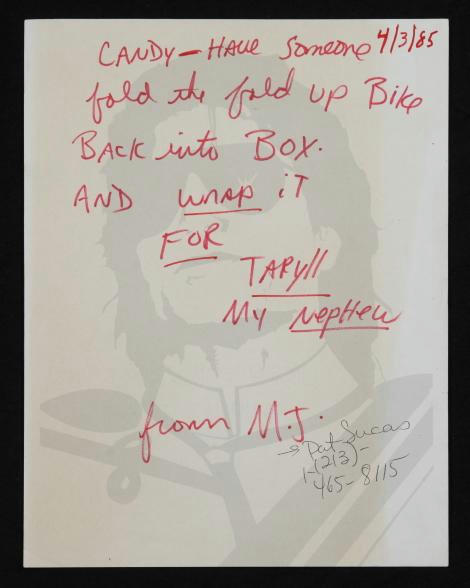 CANDY — HAVE Someone 4/3/85
fold the fold up Bike
BACK into BOX.
AND wrap iT
FOR
TARYll
My Nephew
from M.J.
→ Pat Lucas
1-(213)-
465-8115